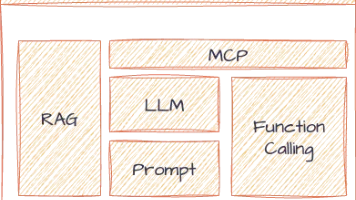 MCP
RAG
LLM
Function
Calling
Prompt